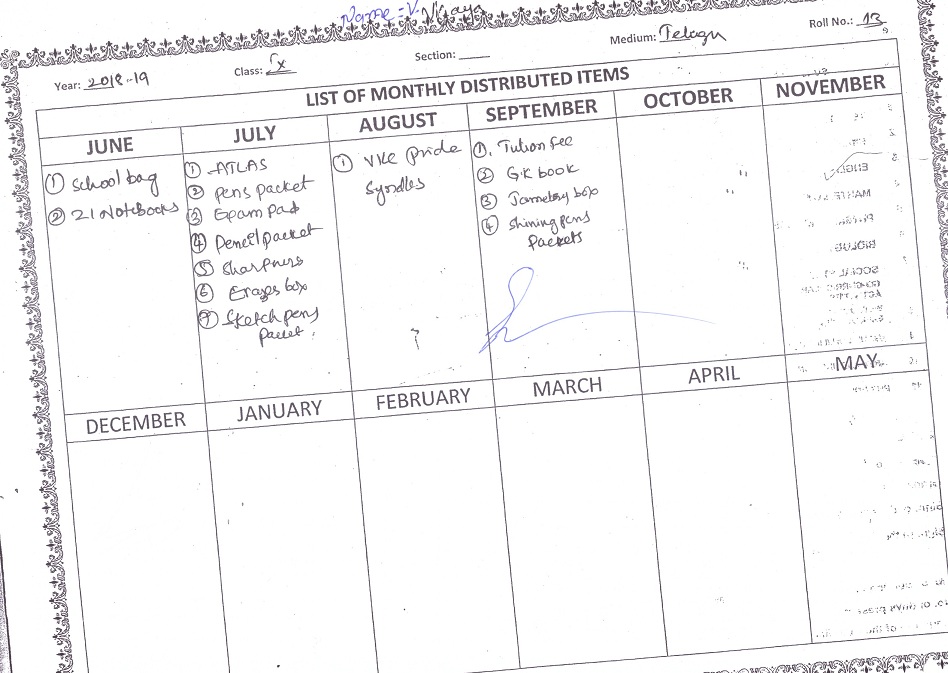 Name = V. Vijaya
Year: 2018-19 Class: IX Section: ____ Medium: Telagu Roll No.: 13
LIST OF MONTHLY DISTRIBUTED ITEMS
JUNE
① School bag
② 21 Notebooks
JULY
① ATLAS
② Pens packet
③ Exam Pad
④ Pencil packet
⑤ Sharpners
⑥ box
⑦ Sketch pens
Packet.
AUGUST
① VKC Pride
Syndles
SEPTEMBER
①. Tution fee
② G.K book
③ box
④ Shining pens
Packets
OCTOBER
NOVEMBER
DECEMBER
JANUARY
FEBRUARY
MARCH
APRIL
MAY